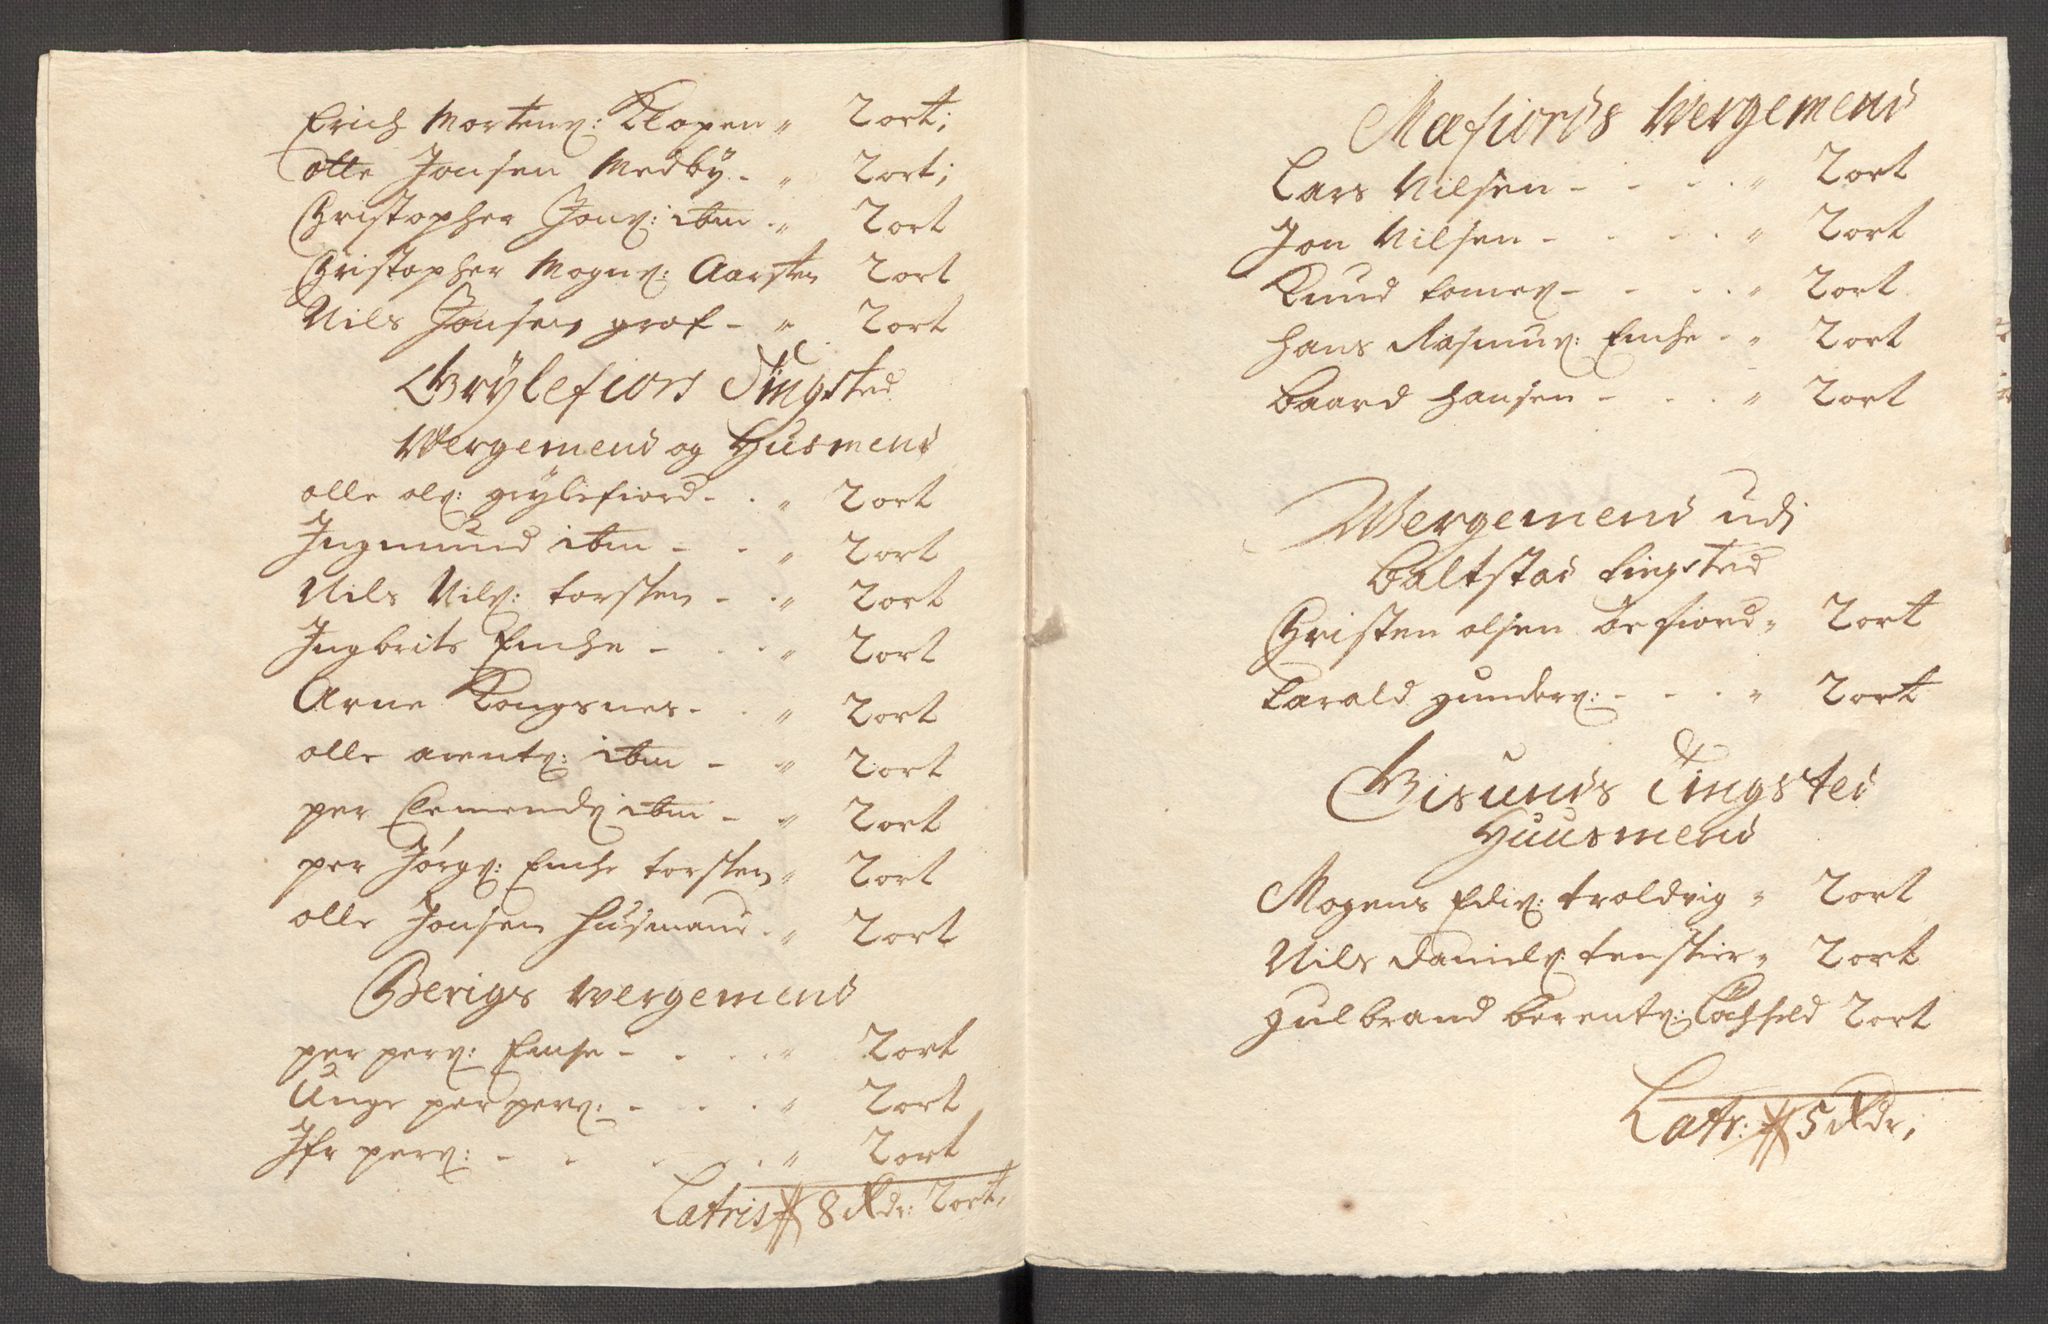 Erich Mortens: Klopen " 2 ort;
olle Jonsen Medby - " 2 ort;
Christopher Jons: ibm - " 2 ort
Christopher Mogns: Aarsten 2 ort
Nils Jonsen graf - " 2 ort
Grÿlefiord Tingsted
Wergemend og Husmend
olle ols: grÿlefiord - - " 2 ort
Ingmund ibm - - " 2 ort
Nils Nils: torsken - - " 2 ort
Ingbrits Enche - - - " 2 ort
Arne Kongsnes - - " 2 ort
olle arents: ibm - " 2 ort
per Clemends ibm - " 2 ort
per Jörgs: Enche torsken " 2 ort
olle Jonsen Husmand - " 2 ort
Bergs wergemend
per pers: Enche - - - - " 2 ort
Unge per pers: - - - " 2 ort
Ifr pers: - - - - " 2 ort
Latris 8 Rdr: 2 ort.
Mefiords Wergemend
Lars Nilsen - - - - " 2 ort
Jon Nilsen - - - - " 2 ort
Knud tomes - - - - " 2 ort
Hans Rasmus: Enche - " 2 ort
Baard Hansen - - - " 2 ort
Wergemend udi
Baltstad tingsted
Christen olsen befiord " 2 ort
Harald gunders: - - - " 2 ort
Gisunds Tingsted
Huusmend
Mogens Edis: troldvig " 2 ort
Nils Daniels: tenskier " 2 ort
gulbrand berents: 2 ort
Latr: 5 Rdr;